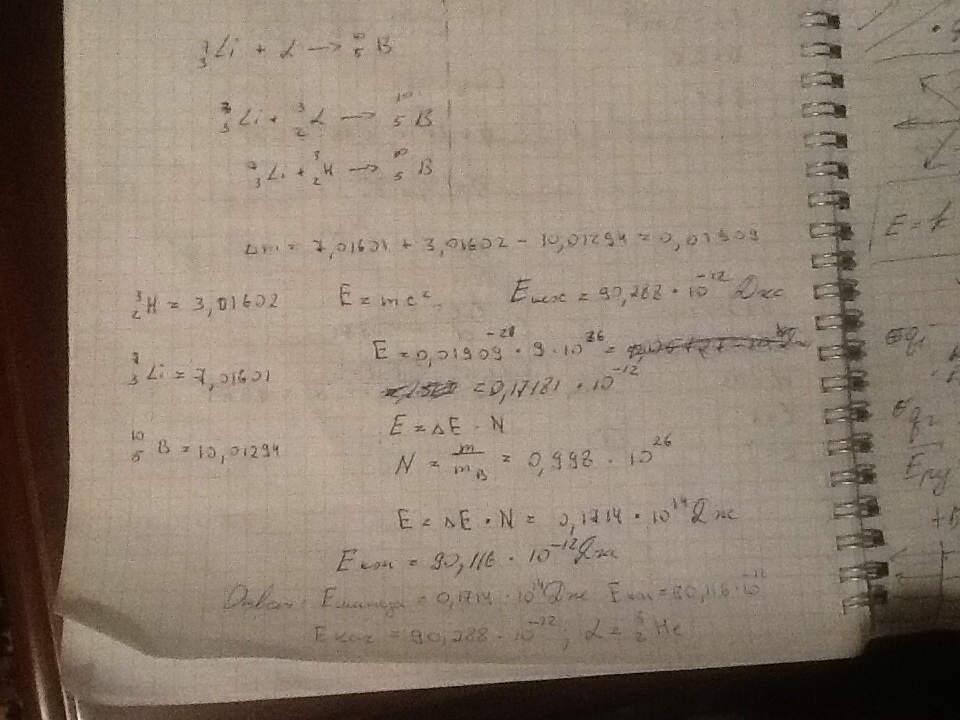 ⁷₃Li + α → ¹⁰₅B
⁷₃Li + ³₂α → ¹⁰₅B
⁷₃Li + ³₂H → ¹⁰₅B
Δm = 7,01601 + 3,01602 - 10,01294 = 0,01909
³₂H = 3,01602
E = mc²
E = 90,288 · 10⁻¹² Дж
E = 0,01909 · 9 · 10
⁷₃Li = 7,01601
= 0,17181 · 10⁻¹²
E = ΔE · N
¹⁰₅B = 10,01294
N = m/m_B = 0,998 · 10²⁶
E = ΔE · N = 0,1714 · 10¹⁴ Дж
E кон = 90,116 · 10⁻¹² Дж
Ответ: E = 0,1714 · 10¹⁴ Дж E кон = 90,116 · 10⁻¹²
E нач = 90,288 · 10⁻¹²; α = ³₂He
E =
q₁
q₂